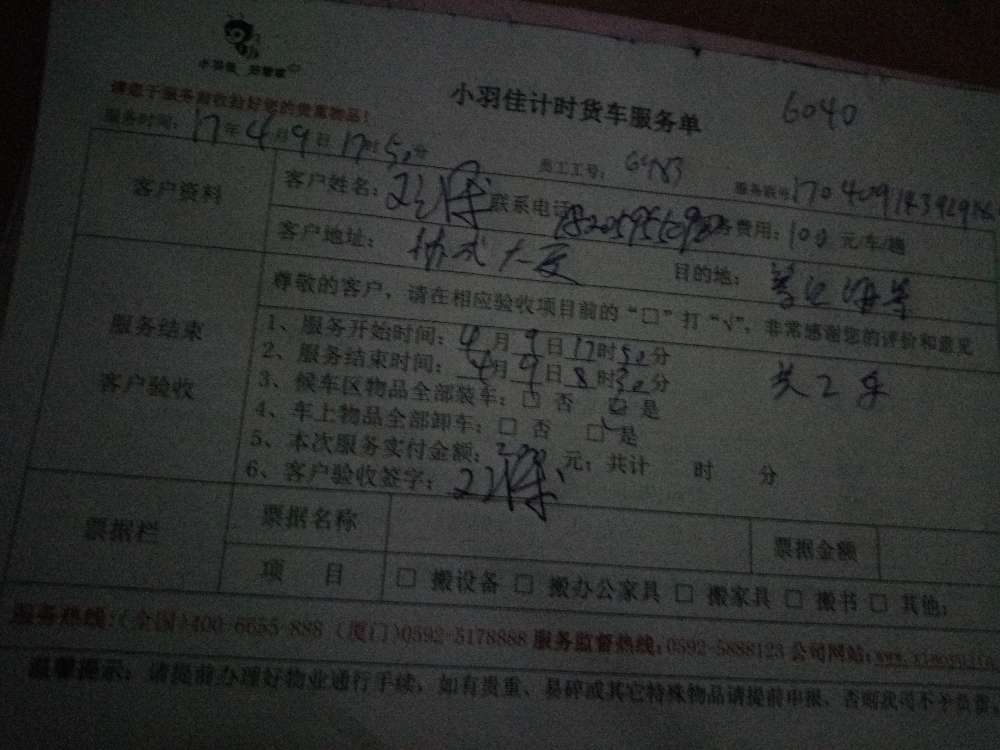 小羽佳计时货车服务单
6040
请您于服务前收拾好您的贵重物品！
服务时间：17年4月9日17时50分
员工工号：
服务账号
客户资料
客户姓名：
联系电话
费用：100元/车/趟
客户地址：协成大厦
目的地：
服务结束
客户验收
尊敬的客户，请在相应验收项目前的“□”打“√”，非常感谢您的评价和意见
1、服务开始时间：4月9日17时50分
2、服务结束时间：4月9日8时30分
共2车
3、候车区物品全部装车：□ 否 □ 是
4、车上物品全部卸车：□ 否 □ 是
5、本次服务实付金额：200元；共计 时 分
6、客户验收签字：
票据栏
票据名称
票据金额
项 目
□ 搬设备 □ 搬办公家具 □ 搬家具 □ 搬书 □ 其他：
服务热线：(全国)400-6655-888 (厦门)0592-5178888 服务监督热线：0592-5888123 公司网站：
温馨提示：请提前办理好物业通行手续，如有贵重、易碎或其它特殊物品请提前申报，否则我司不予负责。